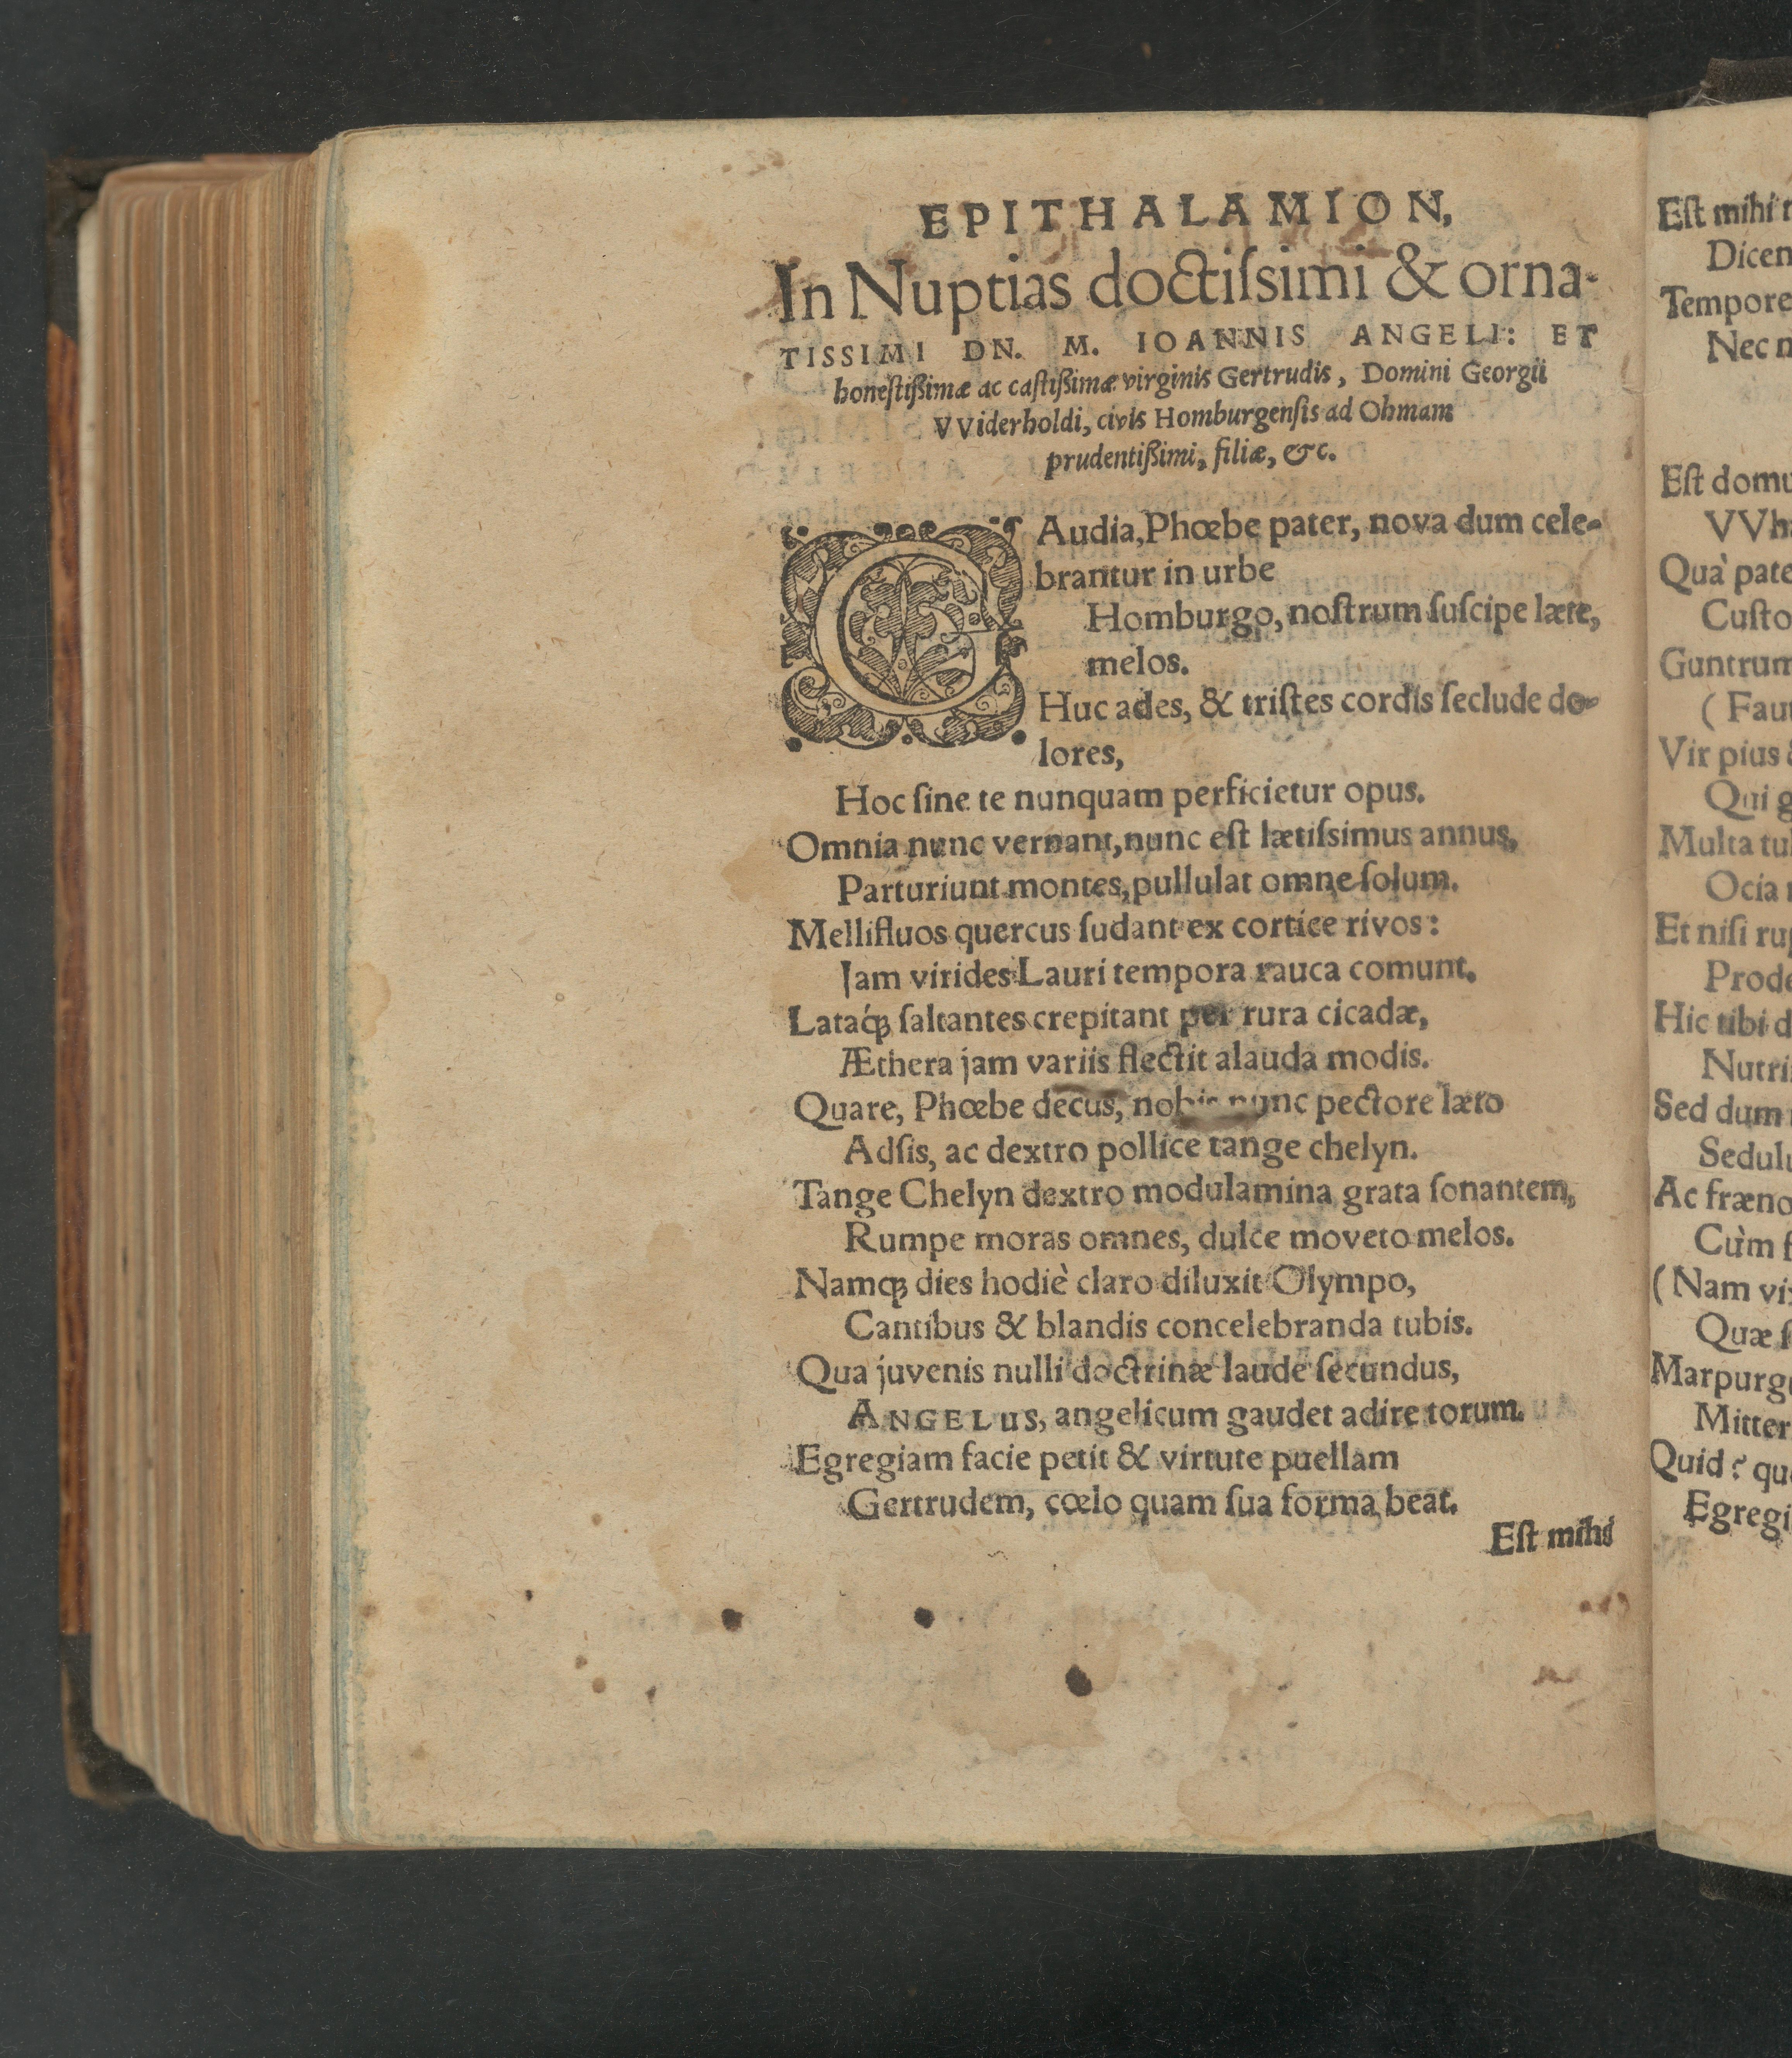 EPITHALAMION,
In Nuptias doctiſsimi & orna-
TISSIMI DN. M. IOANNIS ANGELI: ET
honeſtißimæ ac caſtißimæ virginis Gertrudis, Domini Georgii
VViderholdi, civis Homburgenſis ad Ohmam
prudentißimi, filiæ, &c.
GAudia, Phœbe pater, nova dum cele-
brantur in urbe
Homburgo, noſtrum ſuſcipe læte,
melos.
Huc ades, & triſtes cordis ſeclude do-
lores,
Hoc ſine te nunquam perficietur opus.
Omnia nunc vernant, nunc eſt lætiſsimus annus,
Parturiunt montes, pullulat omne ſolum.
Mellifluos quercus ſudant ex cortice rivos:
Jam virides Lauri tempora rauca comunt.
Latáq; ſaltantes crepitant per rura cicadæ,
Æthera jam variis flectit alauda modis.
Quare, Phœbe decus, nobis nunc pectore læto
Adſis, ac dextro pollice tange chelyn.
Tange Chelyn dextro modulamina grata ſonantem,
Rumpe moras omnes, dulce moveto melos.
Namq; dies hodiè claro diluxit Olympo,
Cantibus & blandis concelebranda tubis.
Qua juvenis nulli doctrinæ laude ſecundus,
ANGELUS, angelicum gaudet adire torum.
Egregiam facie petit & virtute puellam
Gertrudem, cœlo quam ſua forma beat.
Eſt mihi
Eſt mihi
Dicen
Tempore
Nec
Eſt domu
VVh
Quà pate
Cuſto
Guntrum
( Faut
Vir pius
Qui g
Multa tul
Ocia
Et niſi rup
Prode
Hic tibi d
Nutri
Sed dum
Sedulu
Ac fræno
Cùm f
( Nam vix
Quæ ſ
Marpurg
Mitter
Quid? qu
Egregi